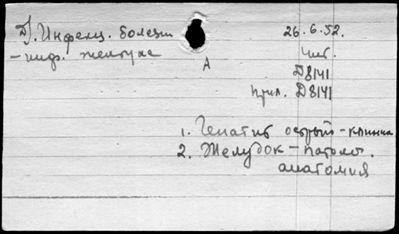 Д). Инфекц. болезни
26.6.52.
– инф. желтуха
Чит.
А
Д8141
Прил. Д8141
1. Гепатит острый – клиника
2. Желудок – патолог.
анатомия